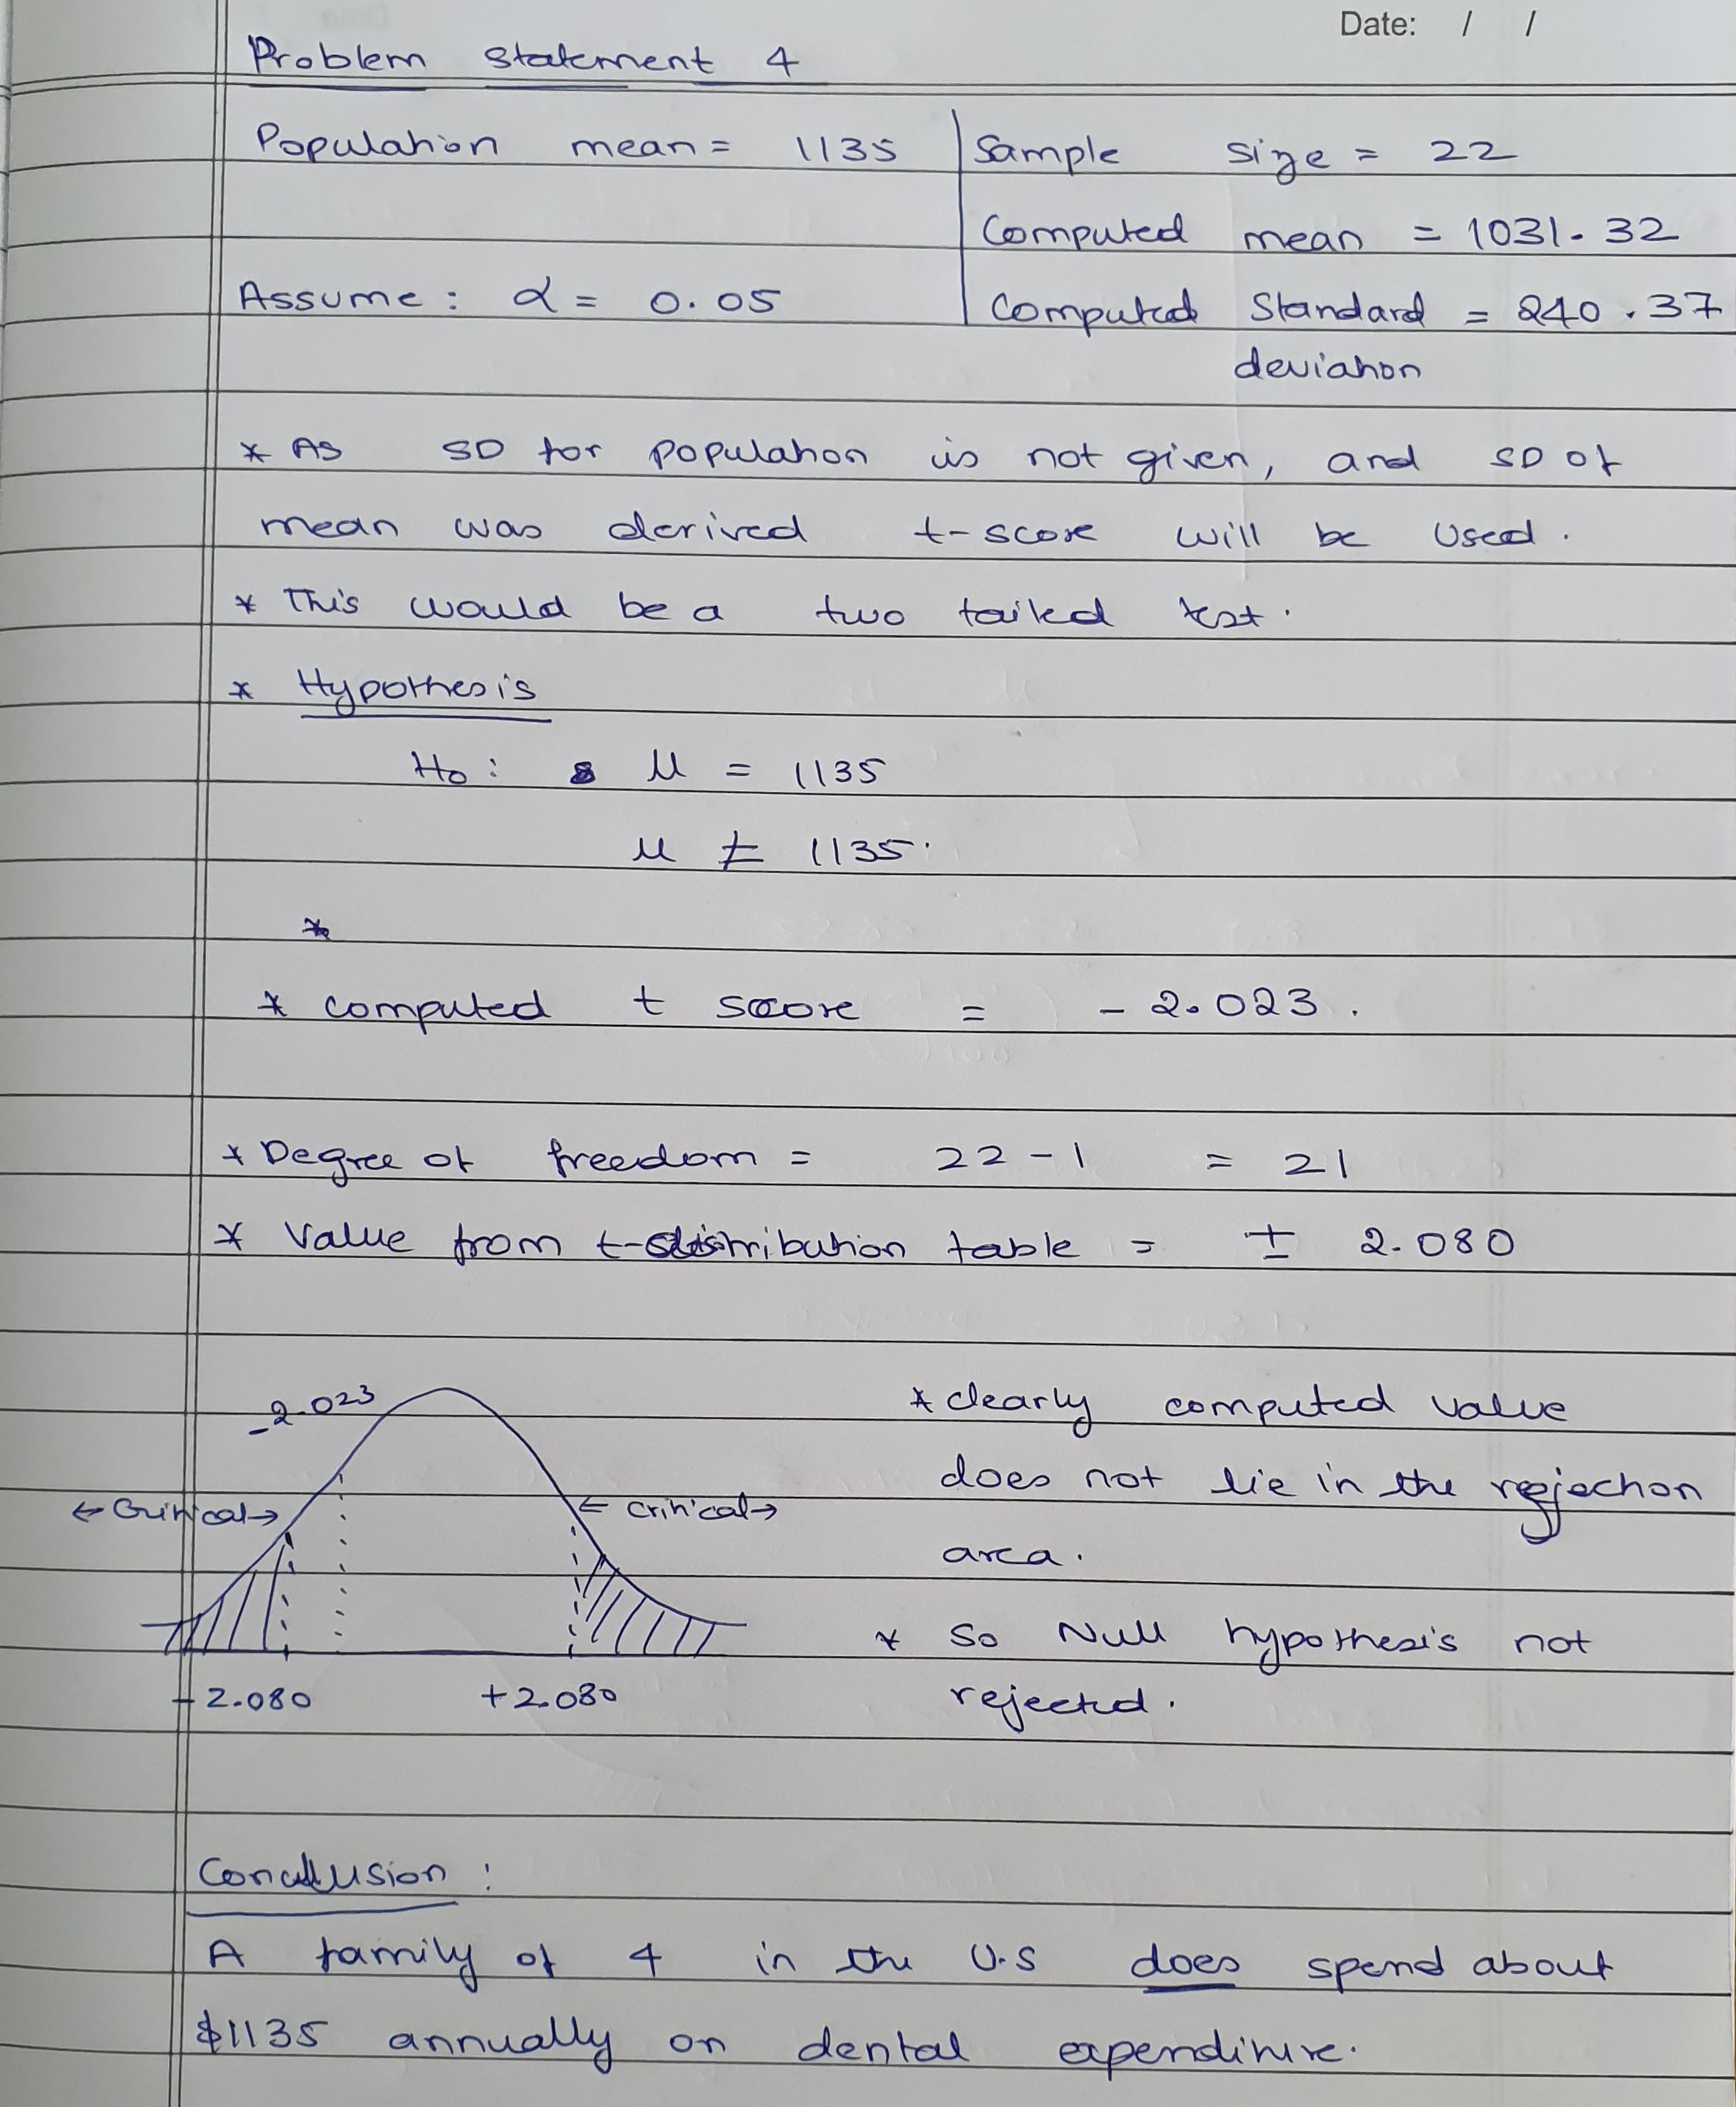 Date: / /
Problem Statement 4
Population mean = 1135
Sample size = 22
Computed mean = 1031.32
Assume: α = 0.05
Computed Standard = 240.37
deviation
* As SD for population is not given, and SD of
mean was derived t-score will be used.
* This would be a two tailed test.
* Hypothesis
Ho: μ = 1135
μ ≠ 1135.
*
* computed t score = - 2.023.
* Degree of freedom = 22 - 1 = 21
* Value from t-distribution table = ± 2.080
-2.023
← Critical →
← critical →
- 2.080
+2.080
* clearly computed value
does not lie in the rejection
area.
* So Null hypothesis not
rejected.
Conclusion:
A family of 4 in the U.S does spend about
$1135 annually on dental expenditure.